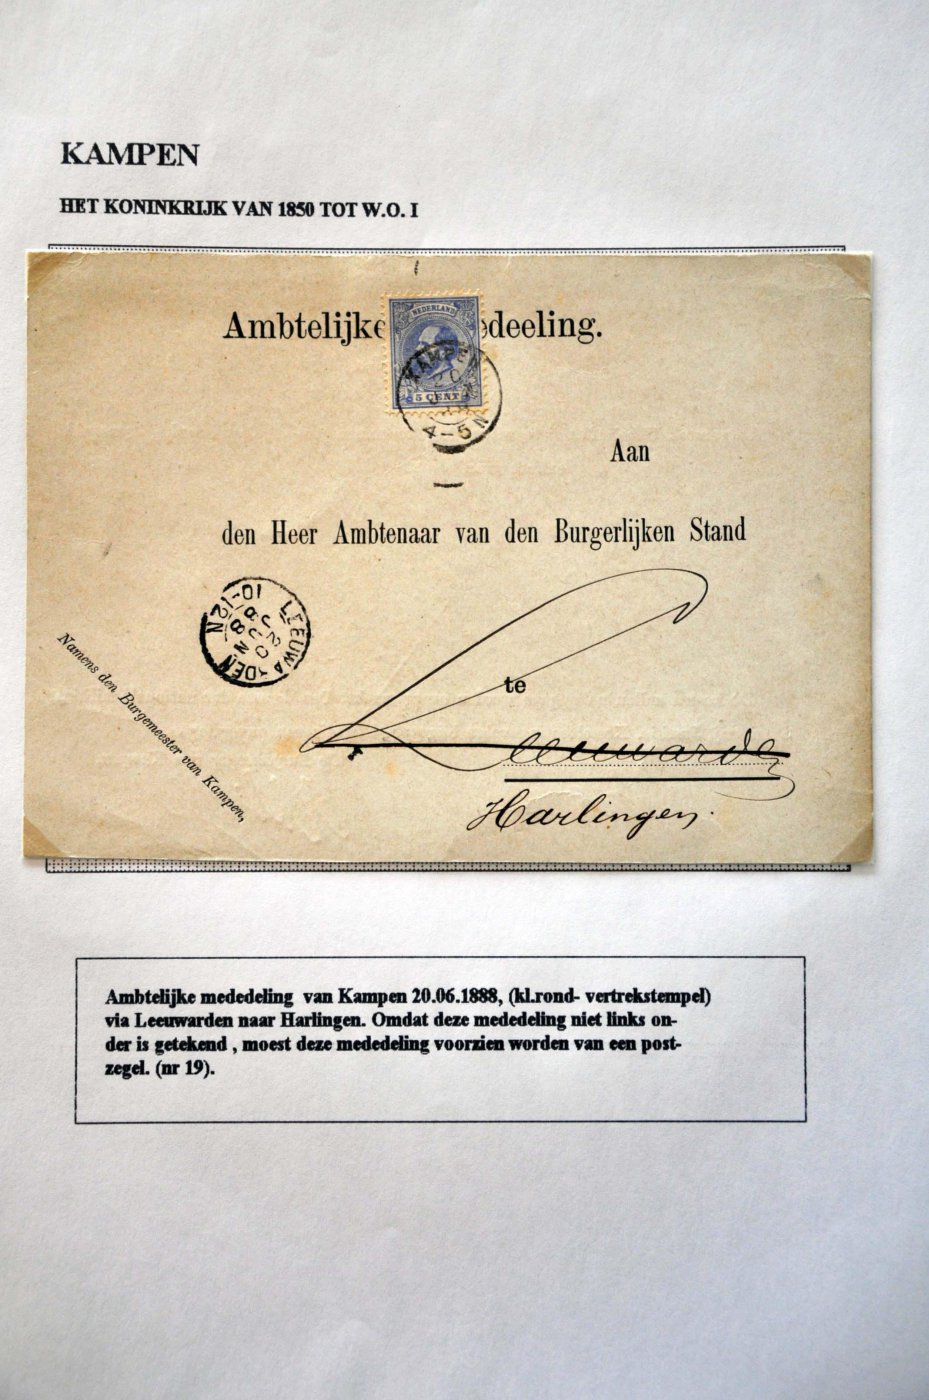 KAMPEN
HET KONINKRIJK VAN 1850 TOT W.O. I
NEDERLAND
5 CENT
Ambtelijke edeeling.
KAMPEN
20
4-5 N
Aan
den Heer Ambtenaar van den Burgerlijken Stand
LEEUWARDEN
20 JUN 88
10-12N
te
Leeuwarden
Harlingen.
Namens den Burgemeester van Kampen,
Ambtelijke mededeling van Kampen 20.06.1888, (kl.rond- vertrekstempel)
via Leeuwarden naar Harlingen. Omdat deze mededeling niet links on-
der is getekend , moest deze mededeling voorzien worden van een post-
zegel. (nr 19).